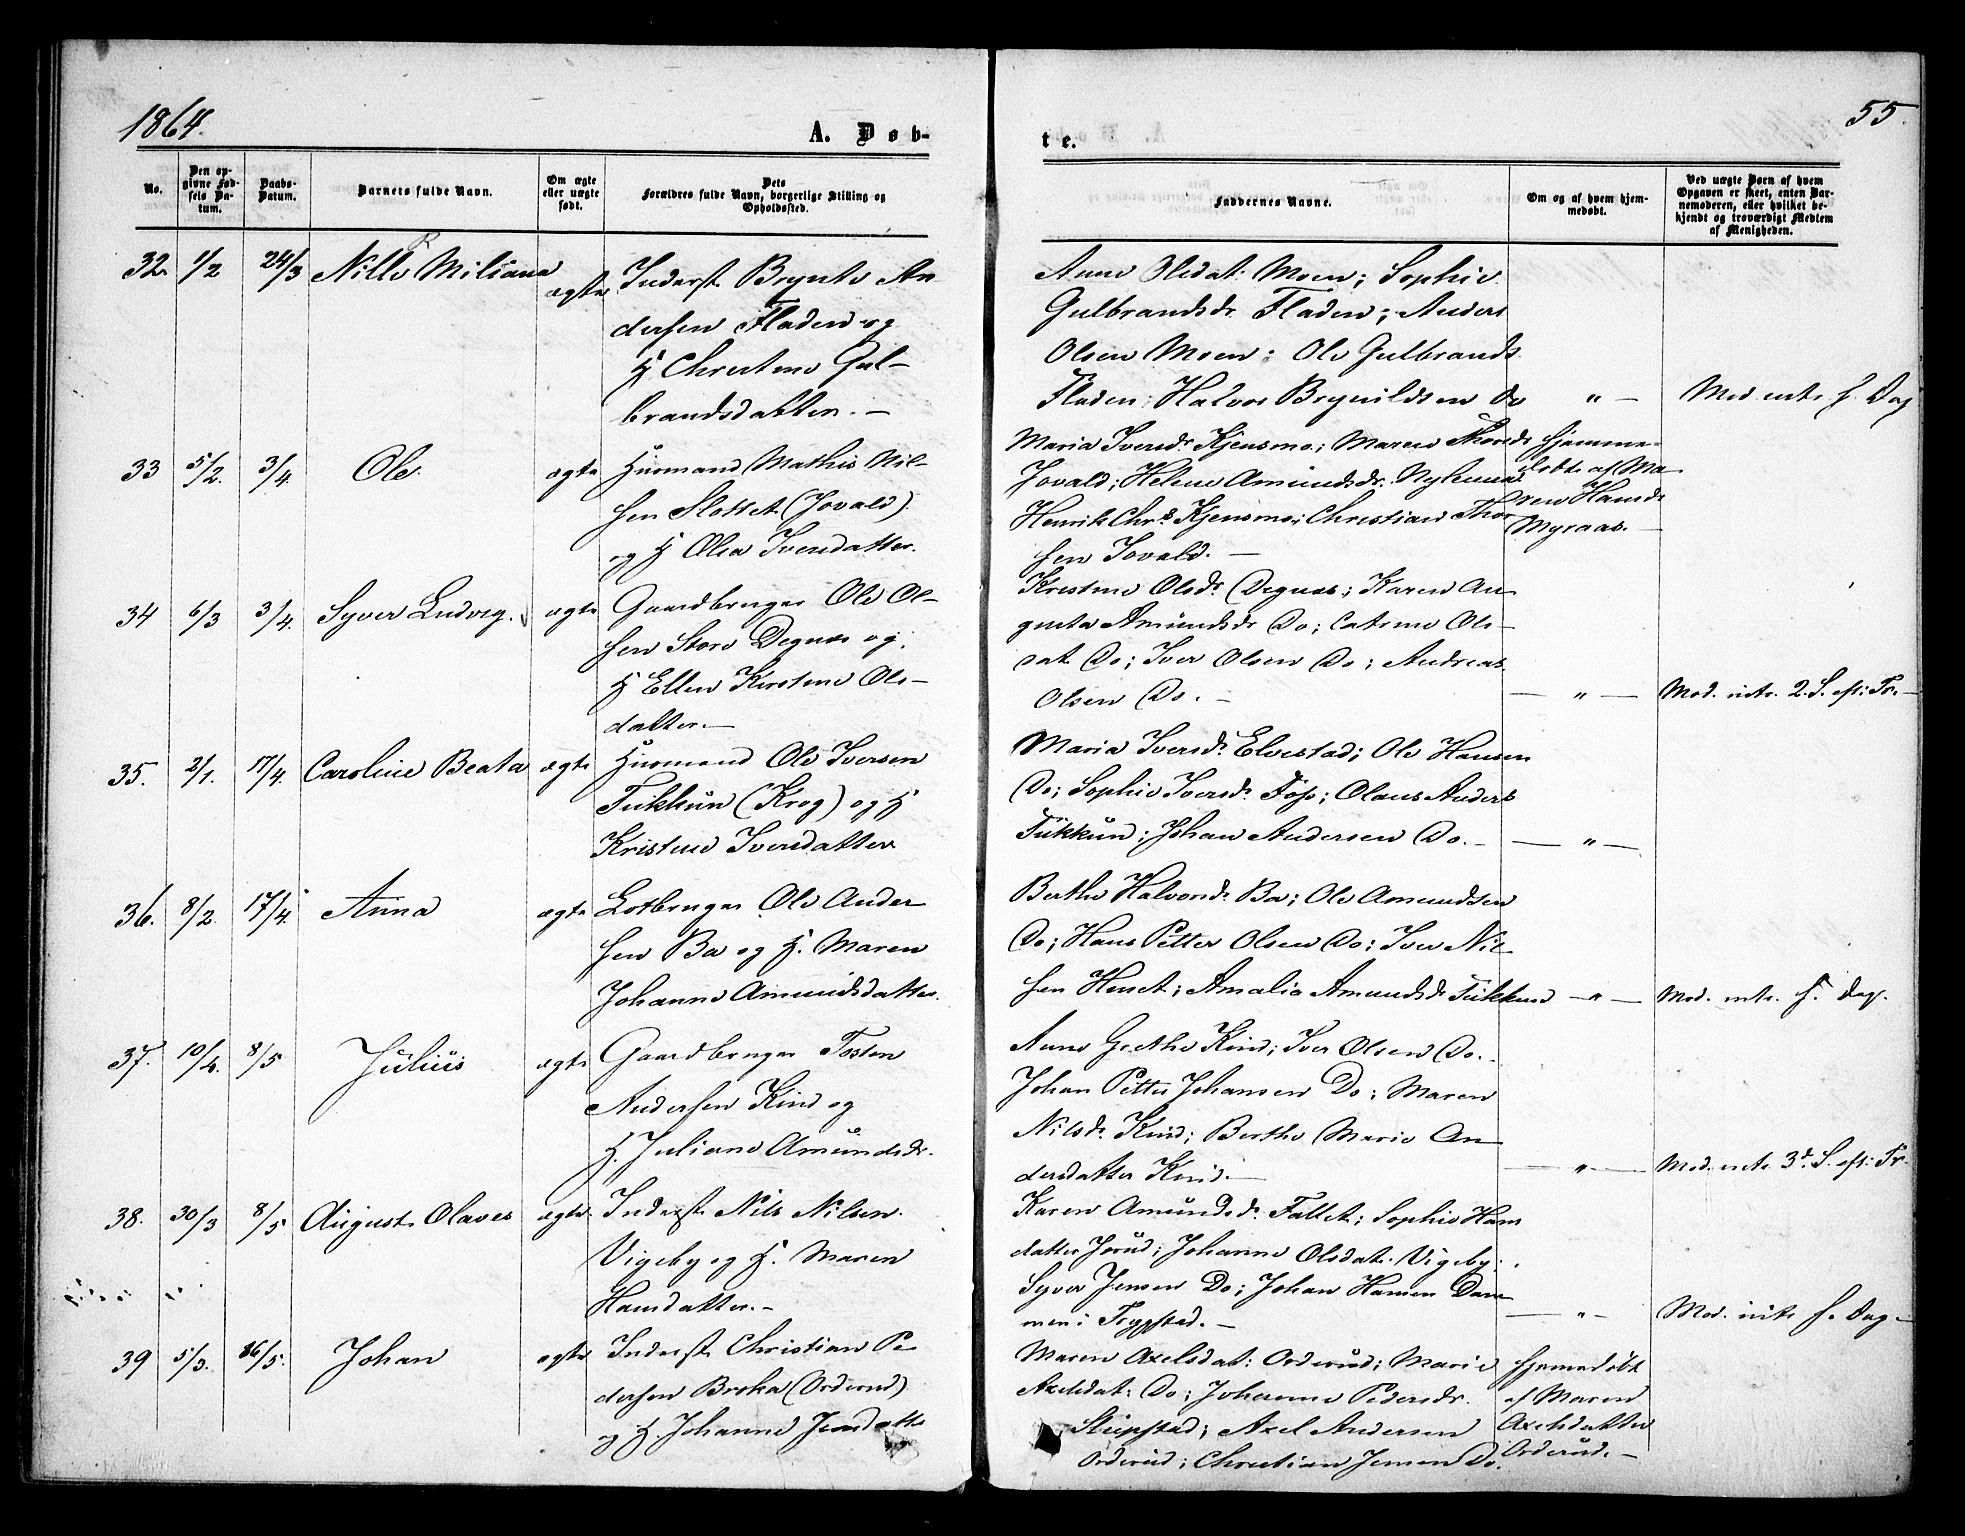 1864.
A. Døb-
te.
55.
No.
Den op-
givne Fød-
sels Da-
tum.
Daabs-
Datum.
Barnets fulde Navn.
Om ægte
eller uægte
født.
Dets
Forældres fulde Navn, borgerlige Stilling og
Opholdssted.
Faddernes Navne.
Om og af hvem hjem-
medøbt.
Ved uægte Børn af hvem
Opgaven er skeet, enten Bar-
nemoderen, eller hvilket be-
kjendt og troværdigt Medlem
af Menigheden.
32 1/2 24/3 Nille Miliane ægte
Inderst Brynte An
dersen Fladen og
H Christine Gul-
brandsdatter. -
Anne Olsdat: Moen; Sophie
Gulbrandsdr Fladen; Anders
Olsen Moen; Ole Gulbrands.
Fladen; Halvor Brynildsen Do
" - Mod intr. s. Dag
33 5/2. 3/4. Ole. ægte
Huusmand Mathis Nil-
sen Slottet (Jovald)
og H Olea Iversdatter.
Maria Iversdr Kjensmo; Maren Thorsdr
Jovald; Helene Amundsdr. Nyhuus
Henrik Chrs Kjensmo; Christian Thor
sen Jovald. -
Hjemme-
døbt af Ma-
ren Hansdr
Myraas. -
34 6/3 3/4. Syver Ludvig. ægte
Gaardbruger Ole Ol-
sen Store Degnæs og
H Ellen Kirstine Ols-
datter. -
Kristine Olsdr. Degnæs; Karen Au-
gusta Amundsdr Do; Catrine Ols-
dat Do; Iver Olsen Do; Andreas
Olsen Do. -
- " - Mod. intr. 2. S. eft: Tr. -
35. 2/1. 17/4. Caroline Beata ægte
Huusmand Ole Iversen
Tukkun (Krog) og H
Kristine Iversdatter
Maria Iversdr. Elvestad; Ole Hansen
Do; Sophie Iversdr. Foss; Olaus Anders
Tukkun; Johan Andersen Do. -
- " -
36. 8/2. 17/4. Anna ægte
Lotbruger Ole Ander
sen Ba og H. Maren
Johanne Amundsdatter.
Berthe Halvorsdr. Ba; Ole Amundsen
Do; Hans Petter Olsen Do; Iver Nil-
sen Huset; Amalia Amundsdr Tukkun
- " - Mod. intr. s. Dag.
37. 10/4. 8/5 Julius ægte
Gaardbruger Tosten
Andersen Kind og
H. Juliane Amundsdr.
Anne Grethe Kind; Iver Olsen Do.
Johan Petter Johansen Do; Maren
Nilsdr. Kind; Berthe Marie An-
dersdatter Kind. -
- " - Mod. intr. 3d. S. eft: Tr.
38. 30/3 8/5 August Olaves ægte.
Inderst Nils Nilsen.
Vigeby og H. Maren
Hansdatter. -
Karen Amundsdr. Fallet; Sophie Hans
datter Jorud; Johanne Olsdat. Vigeby;
Syver Jensen Do; Johan Hansen Dam
men i Trygstad. -
- " - Mod. intr. s. Dag -
39 5/3. 16/5. Johan ægte
Inderst Christian Pe
dersen Breka (Orderud)
og H. Johanne Jensdatter
Maren Axelsdat: Orderud; Marie
Axelsdat: Do; Johanne Pedersdr.
Slupstad; Axel Andersen
Orderud; Christian Jensen Do.
Hjemmedøbt
af Maren
Axelsdatter
Orderud. -